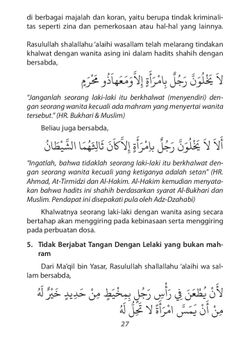 di berbagai majalah dan koran, yaitu berupa tindak kriminali-
tas seperti zina dan pemerkosaan atau hal-hal yang lainnya.
Rasulullah shalallahu 'alaihi wasallam telah melarang tindakan
khalwat dengan wanita asing ini dalam hadits shahih dengan
bersabda,
لَا يَخْلُوَنَّ رَجُلٌ بِامْرَأَةٍ إِلَّا وَمَعَهَا ذُو مَحْرَمٍ
"Janganlah seorang laki-laki itu berkhalwat (menyendiri) den-
gan seorang wanita kecuali ada mahram yang menyertai wanita
tersebut." (HR. Bukhari & Muslim)
Beliau juga bersabda,
أَلَا لَا يَخْلُوَنَّ رَجُلٌ بِامْرَأَةٍ إِلَّا كَانَ ثَالِثَهُمَا الشَّيْطَانُ
"Ingatlah, bahwa tidaklah seorang laki-laki itu berkhalwat den-
gan seorang wanita kecuali yang ketiganya adalah setan" (HR.
Ahmad, At-Tirmidzi dan Al-Hakim. Al-Hakim kemudian menyata-
kan bahwa hadits ini shahih berdasarkan syarat Al-Bukhari dan
Muslim. Pendapat ini disepakati pula oleh Adz-Dzahabi)
Khalwatnya seorang laki-laki dengan wanita asing secara
bertahap akan menggiring pada kebinasaan serta menggiring
pada perbuatan dosa.
5. Tidak Berjabat Tangan Dengan Lelaki yang bukan mah-
ram
Dari Ma'qil bin Yasar, Rasulullah shallallahu 'alaihi wa sal-
lam bersabda,
لَأَنْ يُطْعَنَ فِي رَأْسِ رَجُلٍ بِمِخْيَطٍ مِنْ حَدِيدٍ خَيْرٌ لَهُ
مِنْ أَنْ يَمَسَّ امْرَأَةً لَا تَحِلُّ لَهُ
27